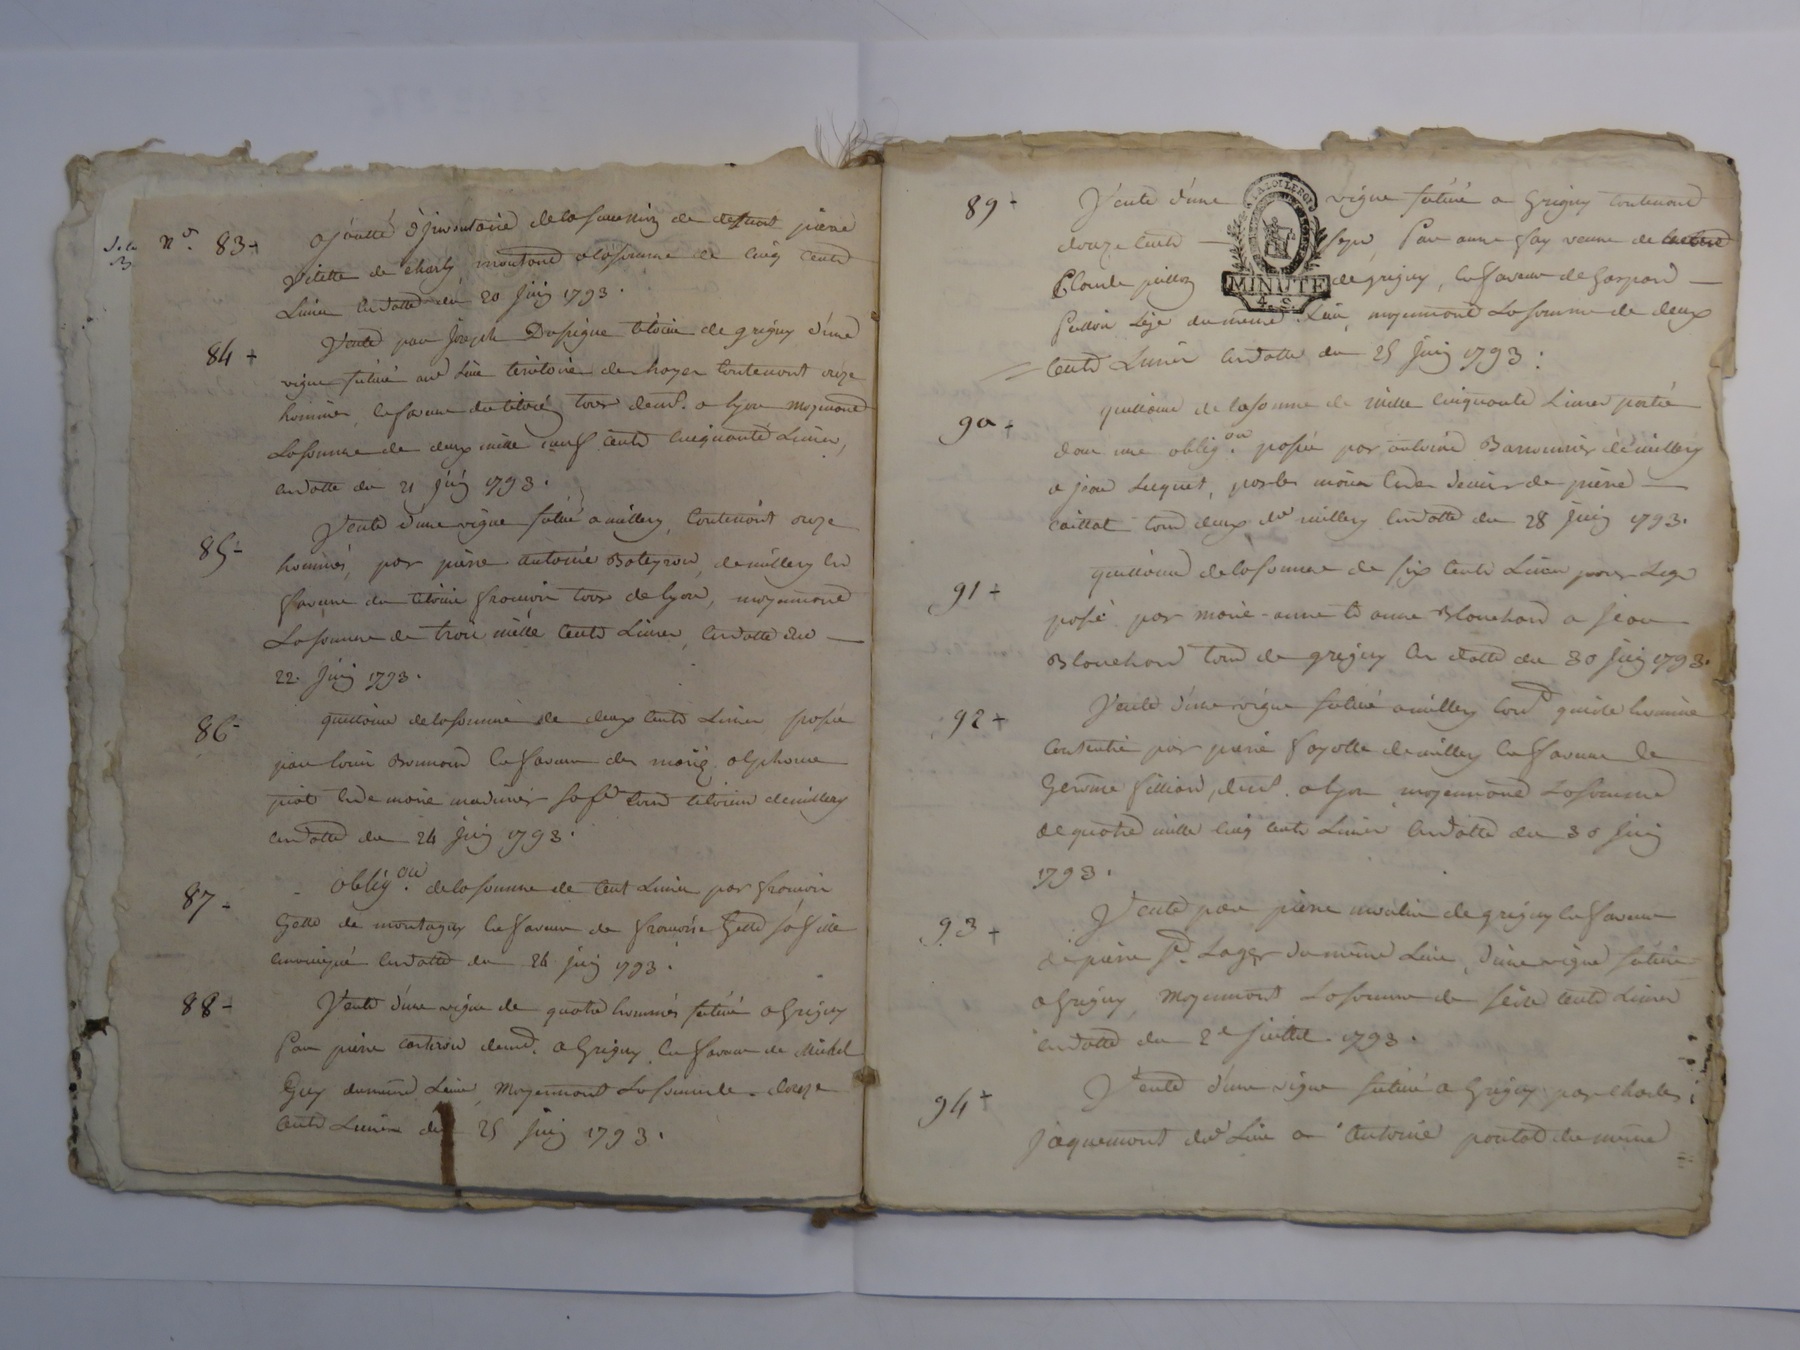 N.° 83 + ajoutté d'inventaire de la succession de deffunt pierre
vilette de Charly montand a la somme de cinq cents
Livres en datte du 20 Juin 1793.
84 + Vente par Joseph citoien de grigny d'une
vigne située aud. Lieu territoire des hayes contenant onze
hommes, en faveur du citoien demt. a Lyon moyennant
La somme de deux mille neuf cents cinquante Livres,
en datte du 21 juin 1793.
85 - Vente d'une vigne située a millery, Contenant onze
hommes, par pierre antoine de millery en
faveur du citoien de Lyon, moyennant
La somme de trois mille cents Livres, en datte du —
22. Juin 1793.
86 - quittance de la somme de deux cents Livres passée
par Louis en faveur de alphonse
piot et de marie sa fe tous citoiens de millery
en datte du 24 juin 1793.
87 - oblig.on de la somme de cent Livres par françois
Gette de montagny en faveur de françoise Gette sa fille
en datte du 24 juin 1793.
88 - Vente d'une vigne de quatre hommes située a Grigny
Par pierre demt. a Grigny en faveur de Michel
Guy du meme Lieu, Moyennant La somme de douze
cents Livres du 25 Juin 1793.
89 - Vente d'une vigne située a Grigny contenant
LA LOI LE ROI
MINUTE
4. S.
Par anne fay veuve de
Claude de grigny, en faveur de Gaspard —
du meme Lieu, moyennant La somme de deux
cents Livres en datte du 25 Juin 1793.
90 + quittance de la somme de mille cinquante Livres portée
dans une oblig.on passée par antoine de millery
a jean Luquet, par les mains et des deniers de pierre —
caillat tous deux de millery en datte du 28 Juin 1793.
91 + quittance de la somme de six cents Livres pour Legs
passé par marie-anne et anne Blanchard a jean
Blanchard tous de grigny en datte du 30 Juin 1793.
92 + Vente d'une vigne située a millery cont. quinze hommes
Consentie par pierre fayolle de millery en faveur de
Gerome fillion, demt. a Lyon moyennant La somme
de quatre mille cinq cents Livres en datte du 30 Juin
1793.
93 + Vente par pierre moulin de grigny en faveur
de pierre St. Lager du meme Lieu, d'une vigne située
a Grigny, Moyennant La somme de seize cents Livres
en datte du 2e juillet 1793.
94 + Vente d'une vigne située a Grigny par charles
jaquemont dud Lieu a antoine du meme